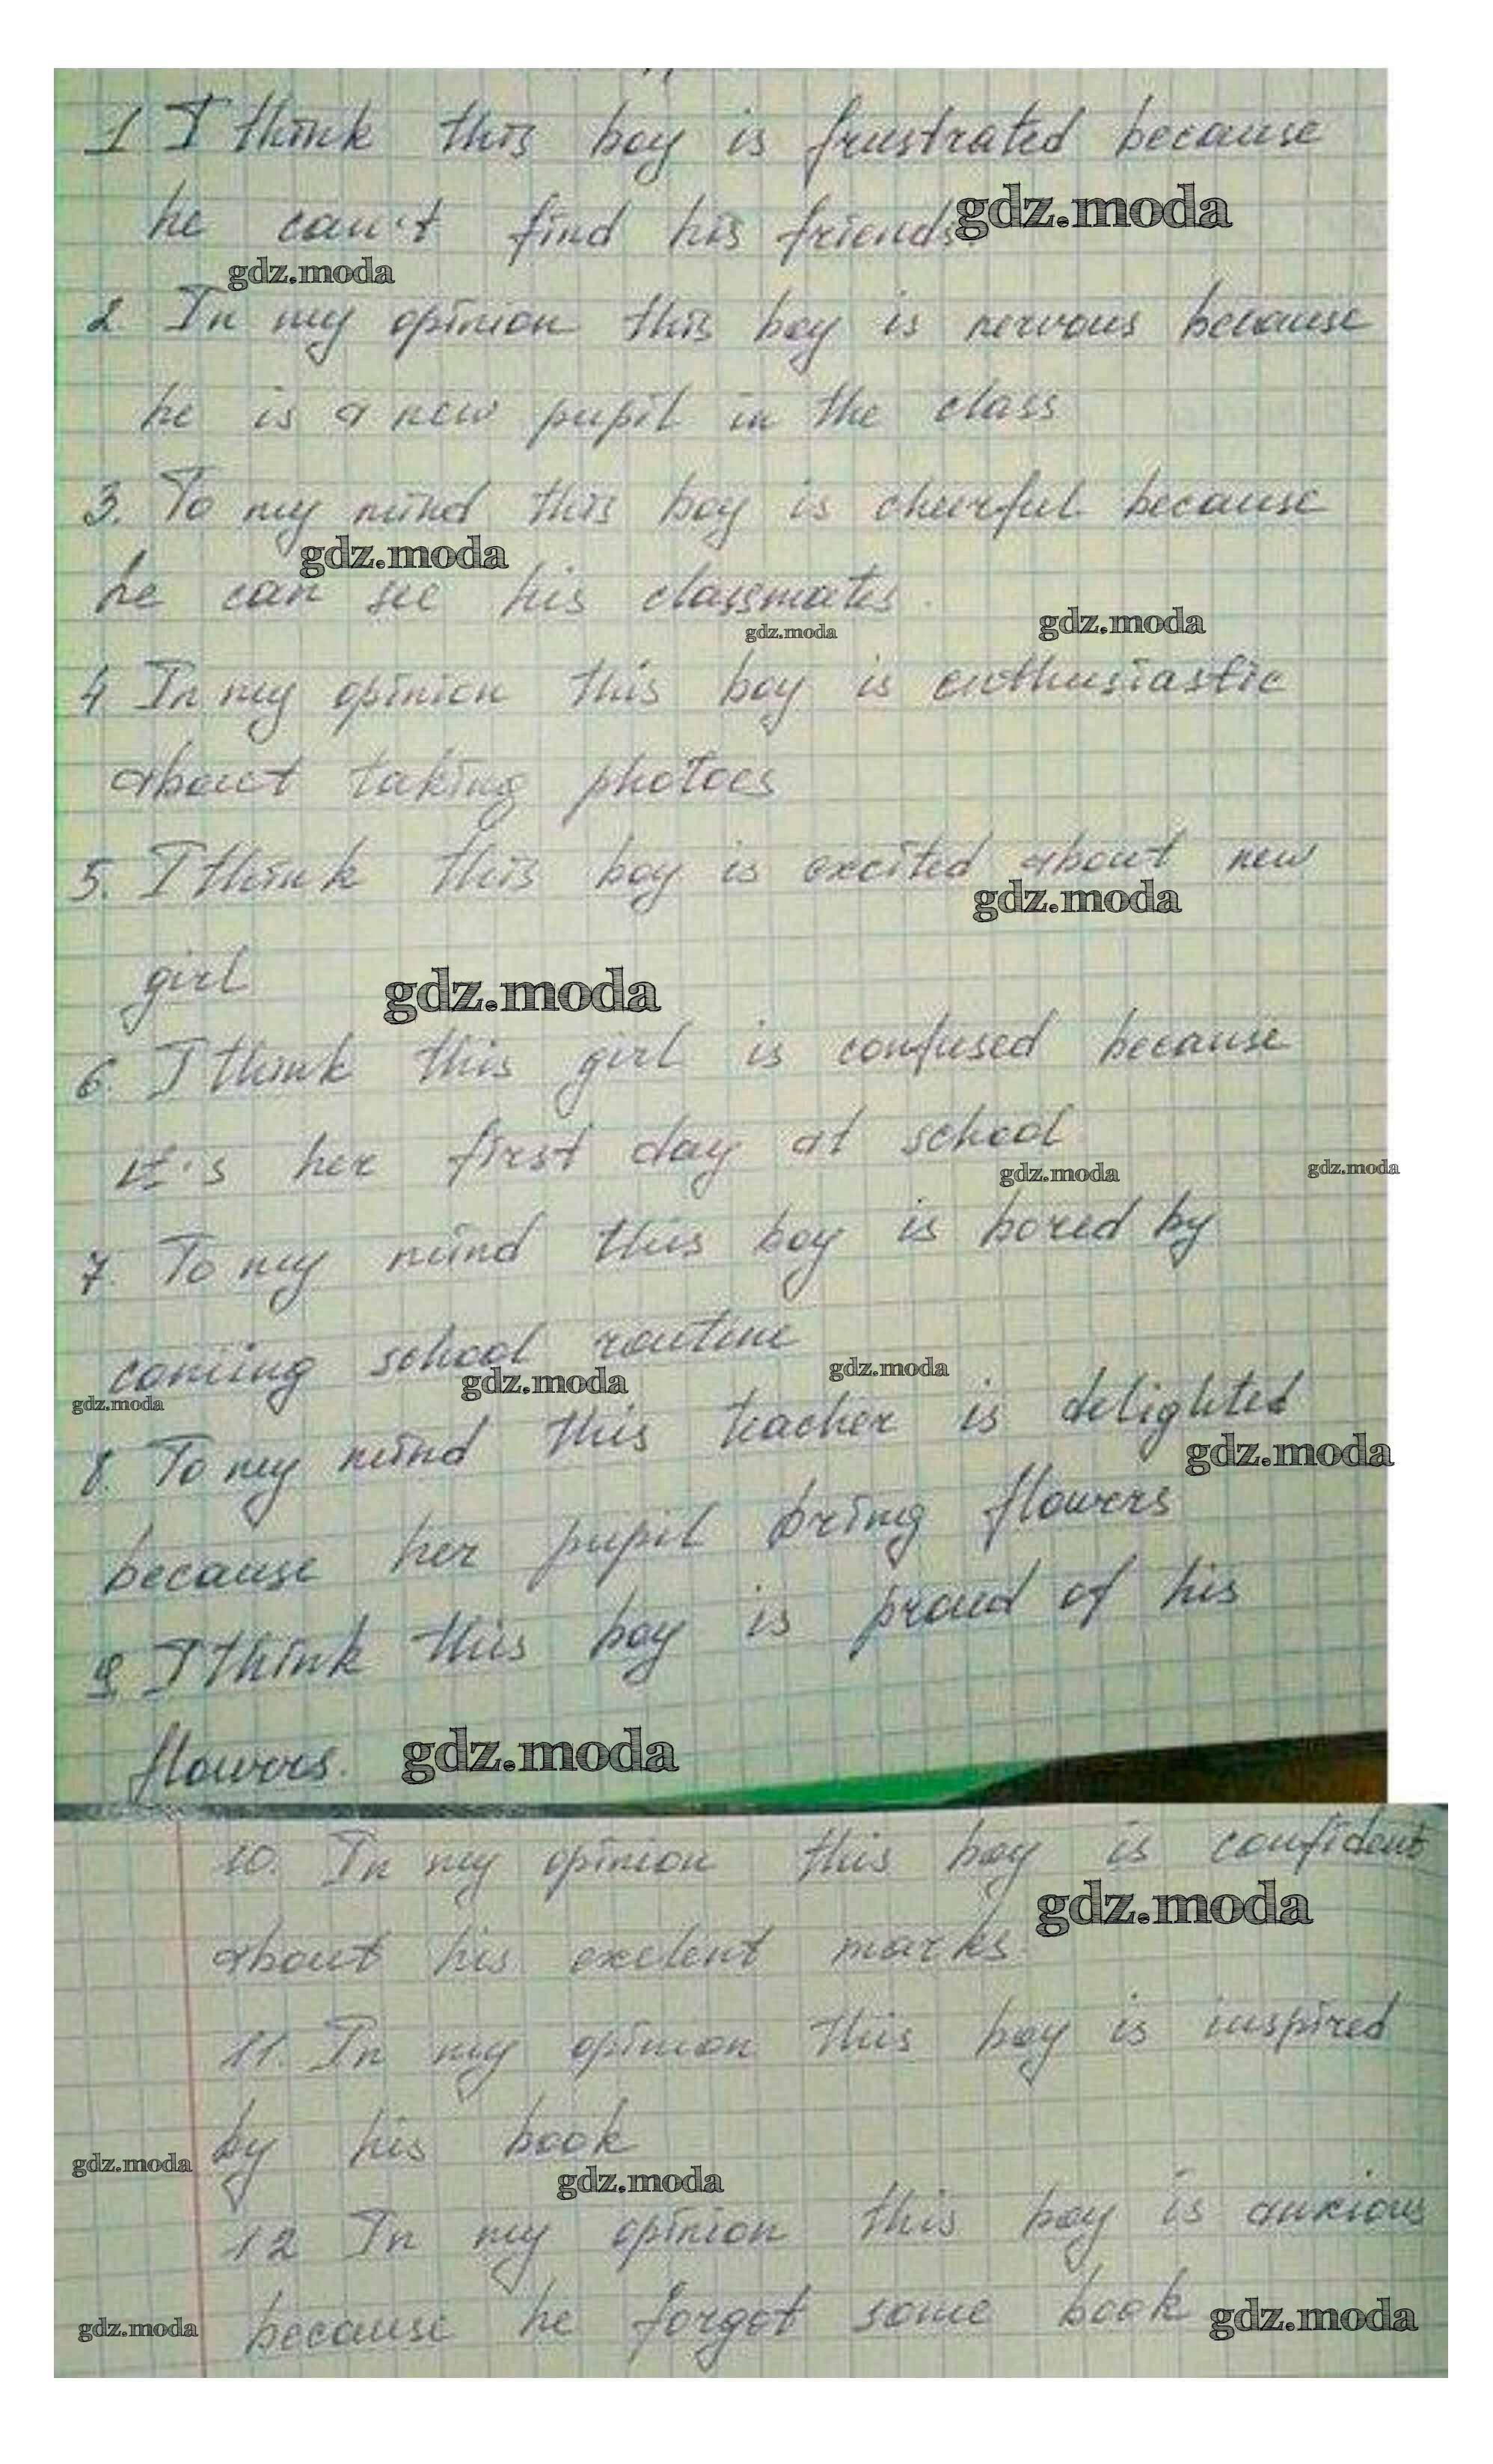 1 I think this boy is frustrated because
he can't find his friends.
gdz.moda
gdz.moda
2 In my opinion this boy is nervous because
he is a new pupil in the class
3. To my mind this boy is cheerful because
gdz.moda
he can see his classmates.
gdz.moda
gdz.moda
4 In my opinion this boy is enthusiastic
about taking photoes
5. I think this boy is excited about new
gdz.moda
girl
gdz.moda
6. I think this girl is confused because
it's her first day at school
gdz.moda
gdz.moda
7. To my mind this boy is bored by
coming school routine
gdz.moda
gdz.moda
gdz.moda
8. To my mind this teacher is delighted
gdz.moda
because her pupil bring flowers
9 I think this boy is proud of his
flowers.
gdz.moda
10. In my opinion this boy is confident
gdz.moda
about his exelent marks.
11. In my opinion this boy is inspired
by his book
gdz.moda
gdz.moda
12 In my opinion this boy is anxious
because he forgot some book
gdz.moda
gdz.moda